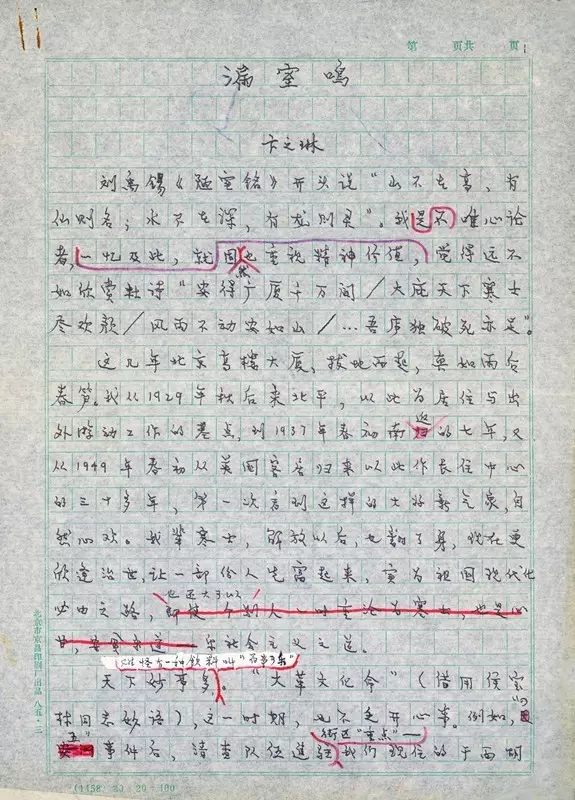 第 页共 页
漏室鸣
卞之琳
刘禹锡《陋室铭》开头说“山不在高，有
仙则名；水不在深，有龙则灵”。我是不唯心论
者，一忆及此，就因也重视精神价值，觉得远不
然
如欣赏杜诗“安得广厦千万间/大庇天下寒士
尽欢颜/风雨不动安如山/…吾庐独破死亦足”。
这几年北京高楼大厦，拔地而起，真如雨后
春笋。我从1929年秋后来北平，以此为居住与出
返
外游动工作的基点，到1937年春初南归的七年，又
从1949年春初从英国客居归来以此作长住中心
的三十多年，第一次看到这样的大好新气象，自
然心欢。我辈寒士，解放以后，也翻了身，现在更
欣逢治世，让一部份人先富起来，实为祖国现代化
也还大可以
必由之路，即使个别人一时重沦为寒士，也是心
甘，安贫乐道——乐社会主义之道。
难怪有一种饮料叫“百事可乐”
天下妙事多。“大革文化命”（借用侯宝
林同志妙语），这一时期，也不乏开心事。例如，
五
事件后，清查队伍进驻我们现住的干面胡
街区“重点”——
北京市京昌印刷厂出品 八五·二
(1158) 20×20=400